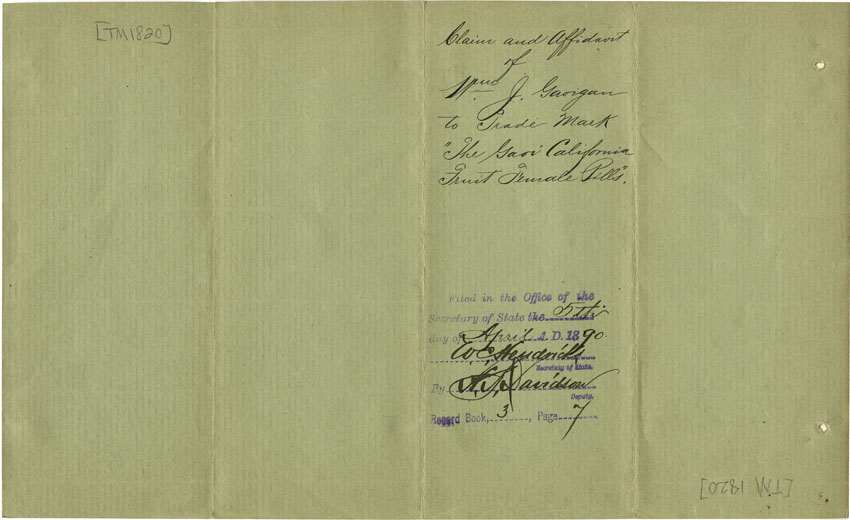 [TM1820]
Claim and Affidavit
of
Wm J. Gaorgan
to Trade Mark
"The Gaoi California
Fruit Female Pills".
Filed in the Office of the
Secretary of State the 5th
day of April A. D. 1890.
W C Hendricks
Secretary of State.
By A. J. Davidson
Deputy.
Record Book, 3, Page 7
[TM 1820]